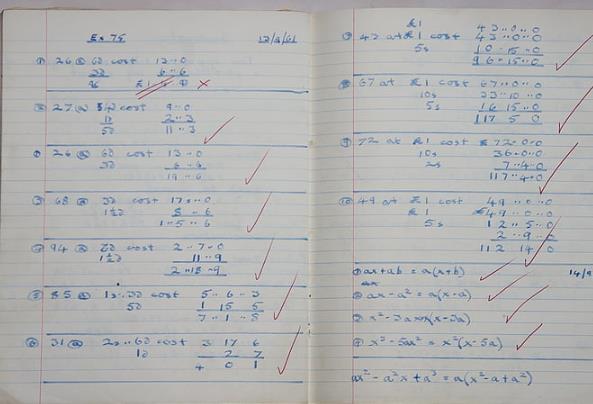 Ex 75 12/9/61
① 26 @ 6d cost 13 .. 0
3d 6 .. 6
② 27 @ 4d cost 9 .. 0
1d 2 .. 3
5d 11 .. 3
26 @ 6d cost 13 .. 0
3d 6 .. 6
19 .. 6
③ 68 @ 3d cost 17 .. 0
1½d 8 .. 6
1 .. 5 .. 6
④ 94 @ cost 2 .. 7 .. 0
1½d 11 .. 9
2 .. 18 .. 9
⑤ 85 @ 1s .. 3d cost 5 .. 6 .. 3
5d 1 15 5
7 .. 1 .. 8
⑥ 31 @ 2s .. 6d cost 3 17 6
1d 2 7
4 0 1
£1 43 .. 0 .. 0
⑦ 43 at £1 cost 43 .. 0 .. 0
5s 10 .. 15 .. 0
96 .. 15 .. 0
⑧ 67 at £1 cost 67 .. 0 .. 0
10s 33 .. 10 .. 0
5s 16 15 .. 0
117 5 0
⑨ 72 at £1 cost £72 .. 0 .. 0
10s 36 .. 0 .. 0
2s 7 .. 4 .. 0
⑩ 49 at £1 cost 49 .. 0 .. 0
£1 £49 .. 0 .. 0
5s 12 .. 5 .. 0
2 .. 9 .. 0
112 14 0
① ax + ab = a(x + b) 14/9
② ax - a² = a(x - a)
③ x² - 3ax x(x - 3a)
④ x³ - 5ax² = x²(x - 5a)
ax² - a²x + a³ = a(x² - a + a²)